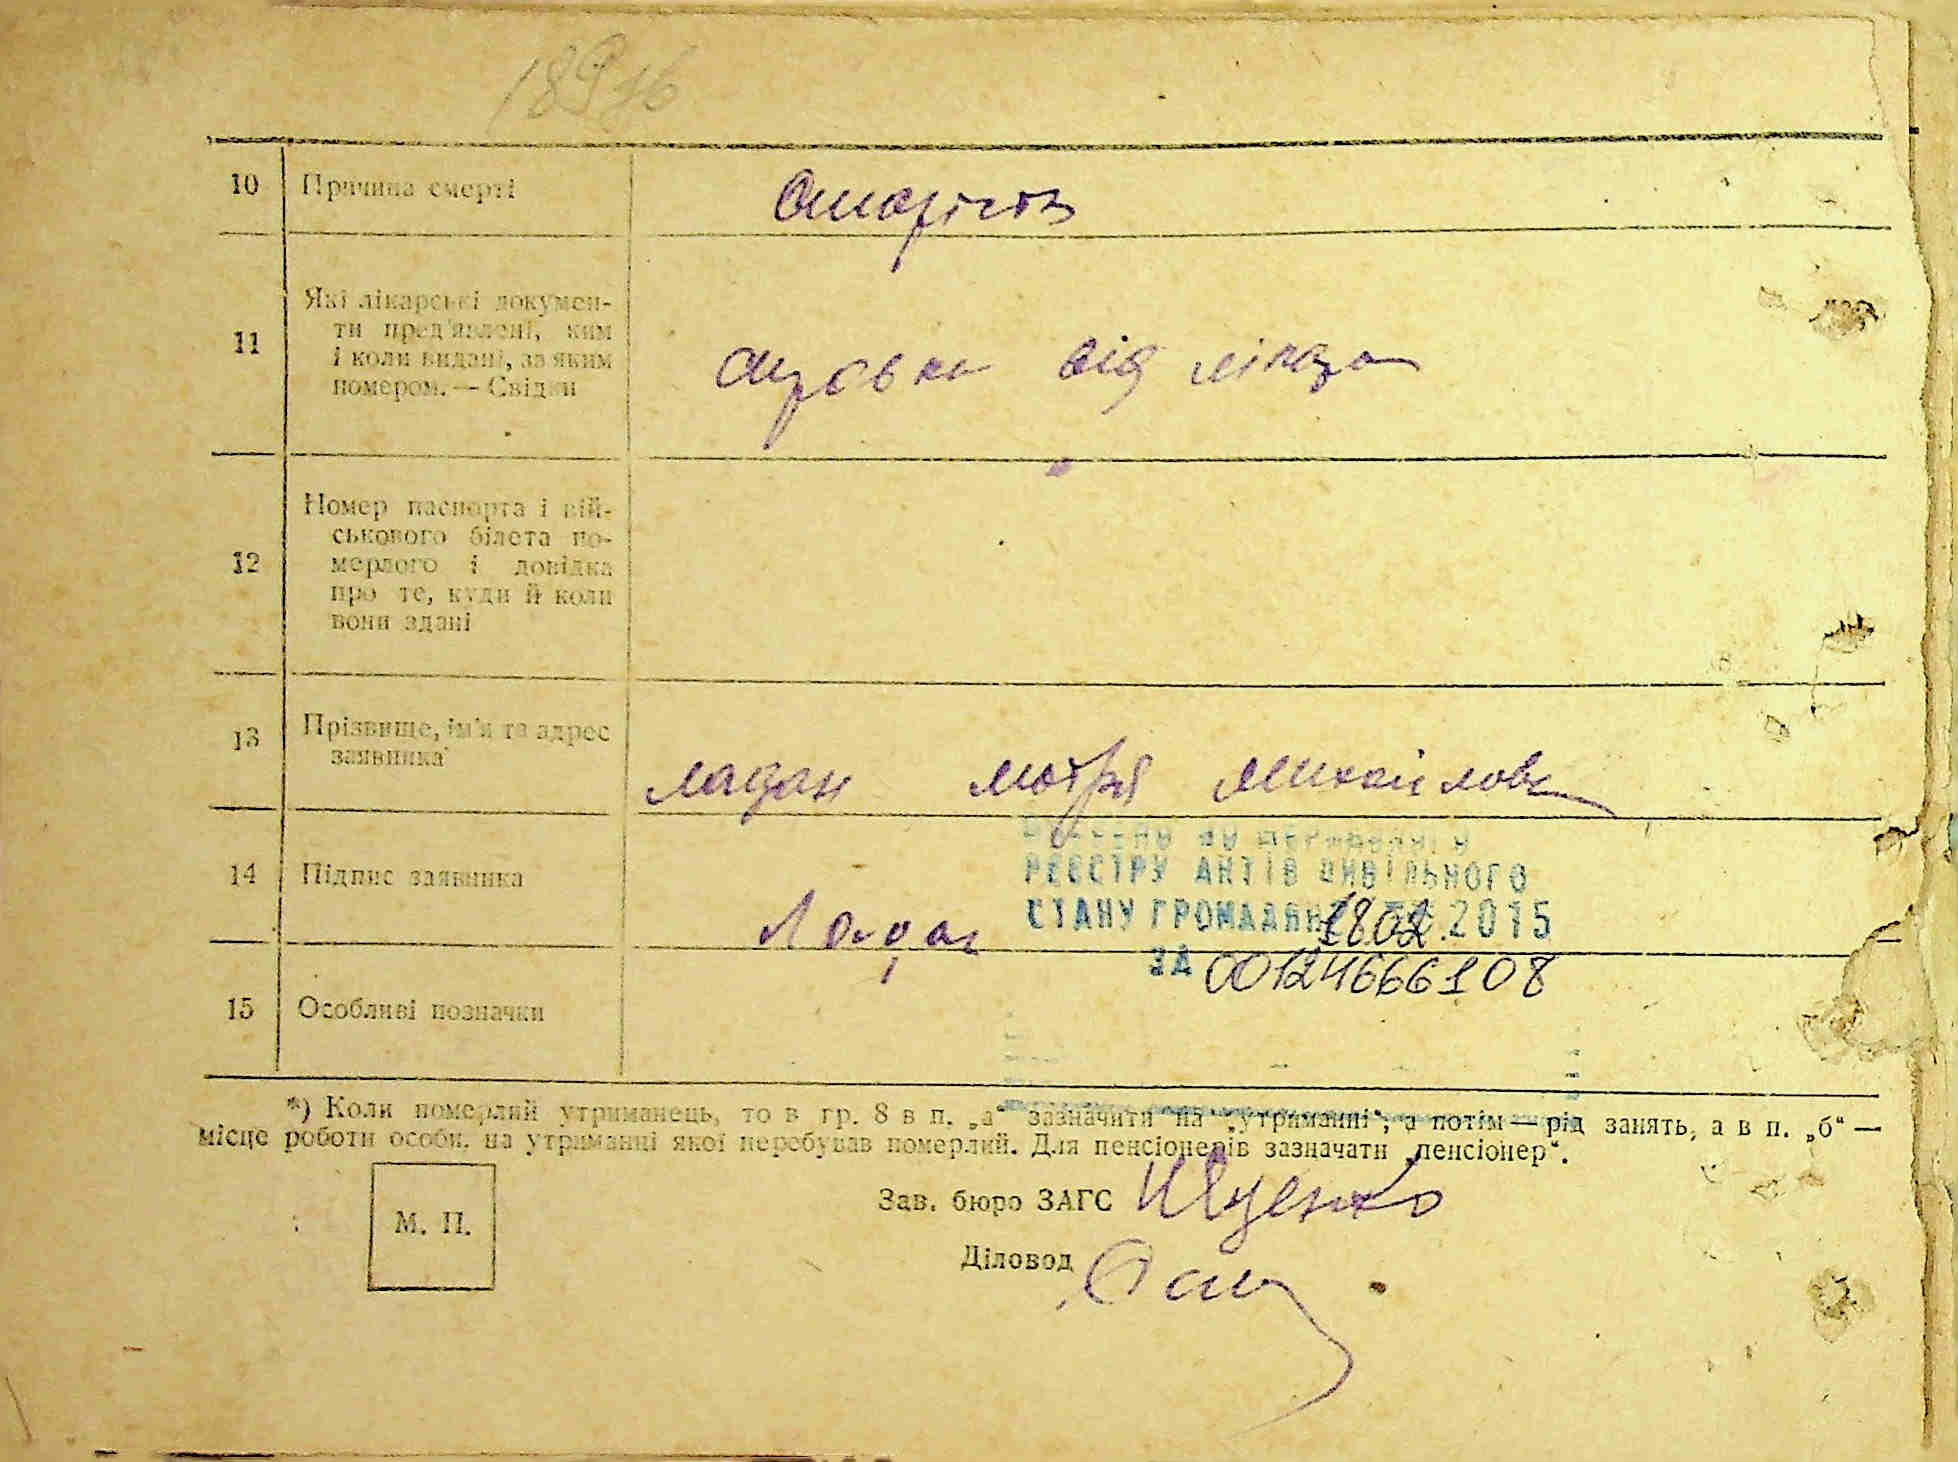 10 Причина смерті
Старість
11 Які лікарські докумен-
ти пред'явлені, ким
і коли видані, за яким
номером. — Свідки
від лікаря
12 Номер паспорта і вій-
ськового білета по-
мерлого і довідка
про те, куди й коли
вони здані
13 Прізвище, ім'я та адрес
заявника
Ладан Мотря Михайлов
14 Підпис заявника
Ладан
РЕЄСТРУ АКТІВ ЦИВІЛЬНОГО
СТАНУ ГРОМАДЯН 18.02.2015
ЗА 00124666108
15 Особливі позначки
*) Коли померлий утриманець, то в гр. 8 в п. „а“ зазначити на „утриманні“, а потім — рід занять, а в п. „б“ —
місце роботи особи, на утриманні якої перебував померлий. Для пенсіонерів зазначати „пенсіонер“.
М. П.
Зав. бюро ЗАГС
Діловод